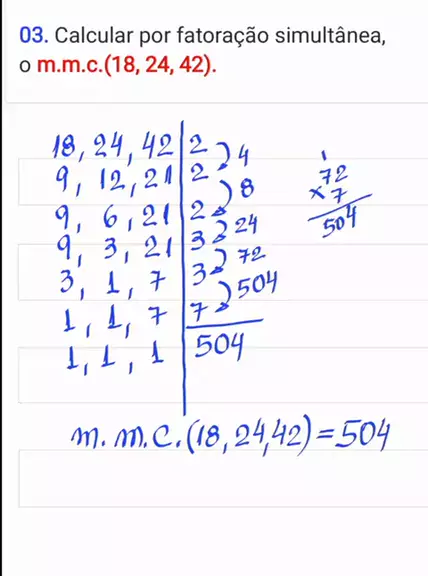 03. Calcular por fatoração simultânea,
o m.m.c.(18, 24, 42).
18, 24, 42 | 2
9, 12, 21 | 2 4
9, 6, 21 | 2 8
9, 3, 21 | 3 24
3, 1, 7 | 3 72
1, 1, 7 | 7 504
1, 1, 1 | 504
1
72
x 7
504
m.m.c.(18, 24, 42) = 504